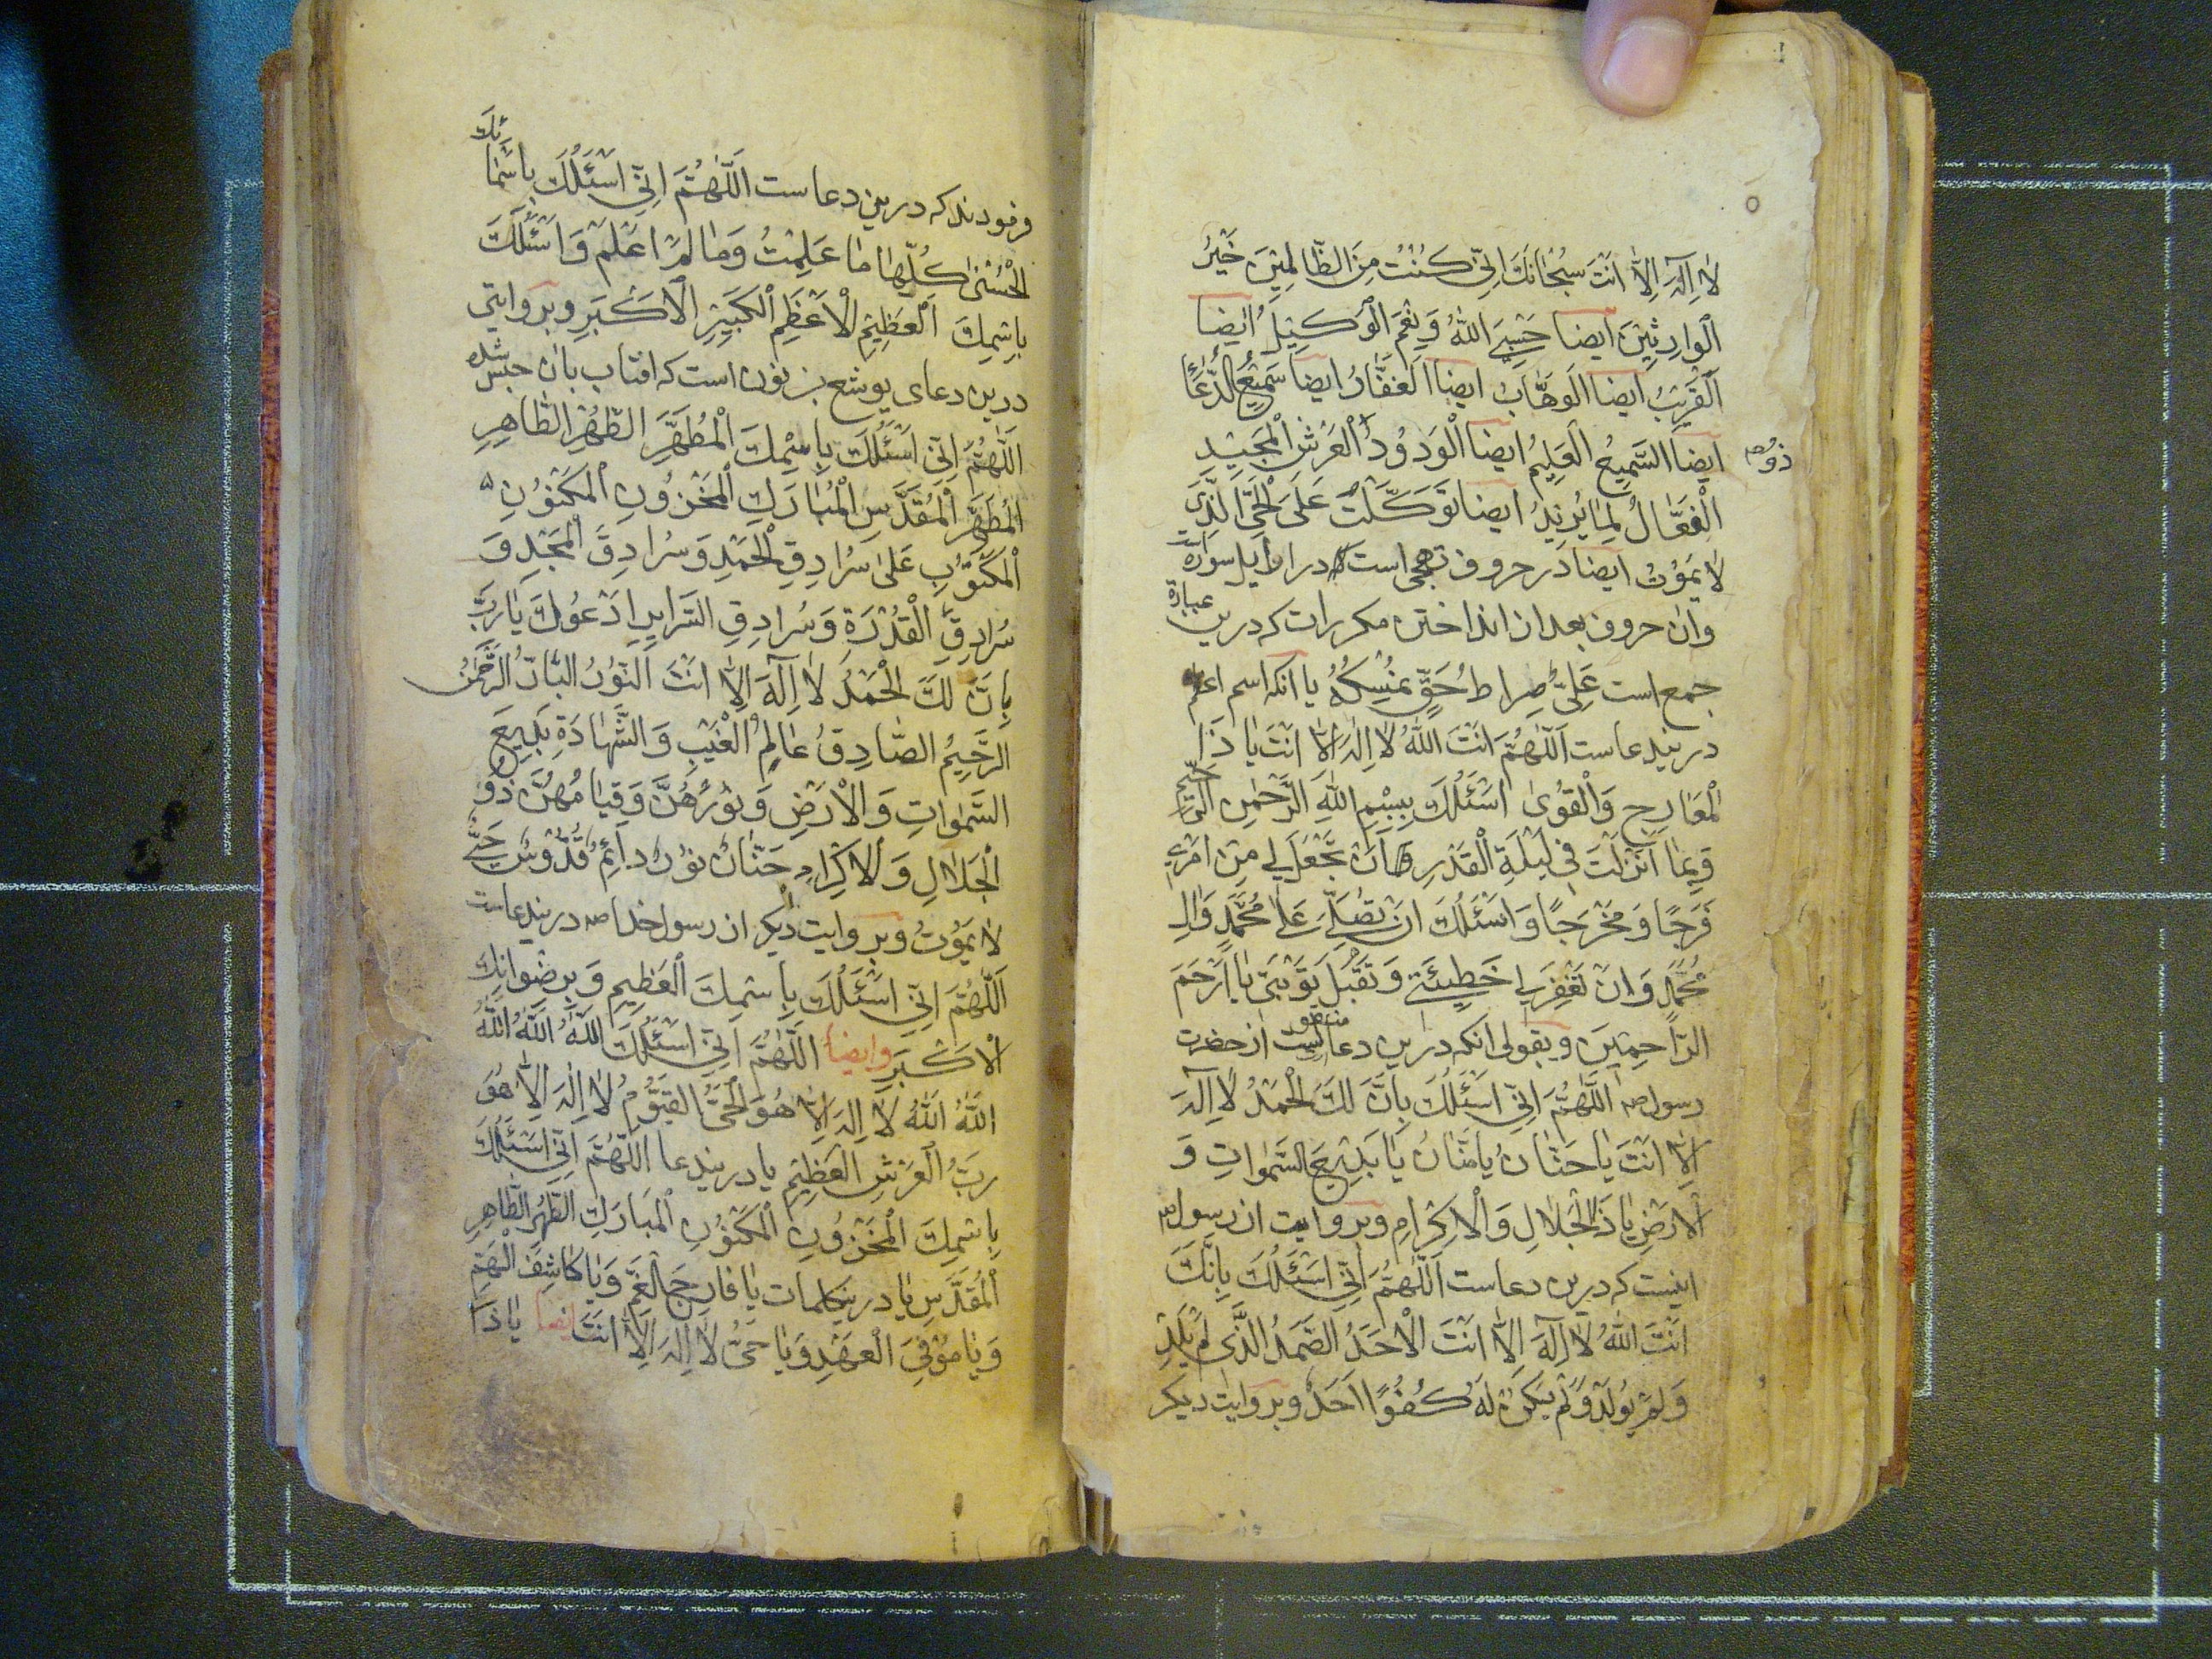 لٰا اِلٰهَ اِلّٰا اَنْتَ سُبْحٰانَكَ اِنّي كُنْتُ مِنَ الظّٰالِمينَ خَيْرُ
الْوارِثينَ ايضا حَسْبِيَ اللّٰهُ وَنِعْمَ الْوَكيلُ ايضا
اَلْقَريبُ ايضا اَلْوَهّٰابُ ايضا اَلْغَفّٰارُ ايضا سَميعُ الدُّعٰاءِ
ايضا السَّميعُ الْعَليمُ ايضا الْوَدُودُ الْعَرْشِ الْمَجيدِ
ذوص
الْفَعّٰالُ لِمٰا يُريدُ ايضا تَوَكَّلْتُ عَلَى الْحَيِّ الَّذي
لٰا يَمُوتُ ايضا در حروف تهجى است كه در اوايل سوراست
وان حروف بعد از انداختن مكررات كه درين عبارة
جمع است عَلِىٌّ صِراطُ حَقٍّ نُمْسِكُهُ يا انكه اسم اعظم
دريندعاست اَللّٰهُمَّ اَنْتَ اللّٰهُ لٰا اِلٰهَ اِلّٰا اَنْتَ يٰا ذَا
الْمَعٰارِجِ وَالْقُوىٰ اَسْئَلُكَ بِبِسْمِ اللّٰهِ الرَّحْمٰنِ الرَّحيمِ
وَبِمٰا اَنْزَلْتَ في لَيْلَةِ الْقَدْرِ اَنْ تَجْعَلَ لي مِنْ اَمْري
فَرَجًا وَمَخْرَجًا وَاَسْئَلُكَ اَنْ تُصَلِّيَ عَلىٰ مُحَمَّدٍ وَالِ
مُحَمَّدٍ وَاَنْ تَغْفِرَ لي خَطيئَتي وَتَقْبَلَ تَوْبَتي يٰا اَرْحَمَ
الرّٰاحِمينَ وبقولى انكه درين دعاست منقول از حضرت
رسول ص اَللّٰهُمَّ اِنّي اَسْئَلُكَ بِاَنَّ لَكَ الْحَمْدُ لٰا اِلٰهَ
اِلّٰا اَنْتَ يٰا حَنّٰانُ يٰا مَنّٰانُ يٰا بَديعَ السَّمٰواتِ وَ
الْاَرْضِ يٰا ذَا الْجَلٰالِ وَالْاِكْرامِ وبروايت از رسول ص
اينست كه درين دعاست اَللّٰهُمَّ اِنّي اَسْئَلُكَ بِاَنَّكَ
اَنْتَ اللّٰهُ لٰا اِلٰهَ اِلّٰا اَنْتَ الْاَحَدُ الصَّمَدُ الَّذي لَمْ يَلِدْ
وَلَمْ يُولَدْ وَلَمْ يَكُنْ لَهُ كُفُوًا اَحَدٌ وبروايت ديكر
فرمودند كه درين دعاست اَللّٰهُمَّ اِنّي اَسْئَلُكَ بِاَسْمٰائِكَ
الْحُسْنىٰ كُلِّهٰا مٰا عَلِمْتُ وَمٰا لَمْ اَعْلَمْ وَاَسْئَلُكَ
بِاسْمِكَ الْعَظيمِ الْاَعْظَمِ الْكَبيرِ الْاَكْبَرِ وبروايتى
درين دعاى يوشع بن نون است كه افتاب بان حبس شده
اَللّٰهُمَّ اِنّي اَسْئَلُكَ بِاسْمِكَ الْمُطَهَّرِ الطُّهْرِ الطّٰاهِرِ
الْمُطَهَّرِ الْمُقَدَّسِ الْمُبٰارَكِ الْمَخْزُونِ الْمَكْنُونِ
الْمَكْتُوبِ عَلىٰ سُرادِقِ الْحَمْدِ وَسُرادِقِ الْمَجْدِ وَ
سُرادِقِ الْقُدْرَةِ وَسُرادِقِ السَّرايِرِ اَدْعُوكَ يٰا رَبِّ
بِاَنَّ لَكَ الْحَمْدُ لٰا اِلٰهَ اِلّٰا اَنْتَ النُّورُ الْبٰارُّ الرَّحْمٰنُ
الرَّحيمُ الصّٰادِقُ عٰالِمُ الْغَيْبِ وَالشَّهٰادَةِ بَديعُ
السَّمٰواتِ وَالْاَرْضِ وَنُورُهُنَّ وَقِيٰامُهُنَّ ذُو
الْجَلٰالِ وَالْاِكْرامِ حَنّٰانٌ نُورٌ دٰائِمٌ قُدُّوسٌ حَيٌّ
لٰا يَمُوتُ وبروايت ديكر از رسول خدا ص دريندعاست
اَللّٰهُمَّ اِنّي اَسْئَلُكَ بِاسْمِكَ الْعَظيمِ وَبِرِضْوانِكَ
الْاَكْبَرِ وايضا اَللّٰهُمَّ اِنّي اَسْئَلُكَ اَللّٰهُ اَللّٰهُ اَللّٰهُ
اَللّٰهُ اَللّٰهُ لٰا اِلٰهَ اِلّٰا هُوَ الْحَيُّ الْقَيُّومُ لٰا اِلٰهَ اِلّٰا هُوَ
رَبُّ الْعَرْشِ الْعَظيمِ يا دريندعا اَللّٰهُمَّ اِنّي اَسْئَلُكَ
بِاسْمِكَ الْمَخْزُونِ الْمَكْنُونِ الْمُبٰارَكِ الطُّهْرِ الطّٰاهِرِ
الْمُقَدَّسِ يا درينكلمات يٰا فٰارِجَ الْغَمِّ وَيٰا كٰاشِفَ الْهَمِّ
وَيٰا مُوفِيَ الْعَهْدِ وَيٰا حَيُّ لٰا اِلٰهَ اِلّٰا اَنْتَ ايضا يٰا ذَا